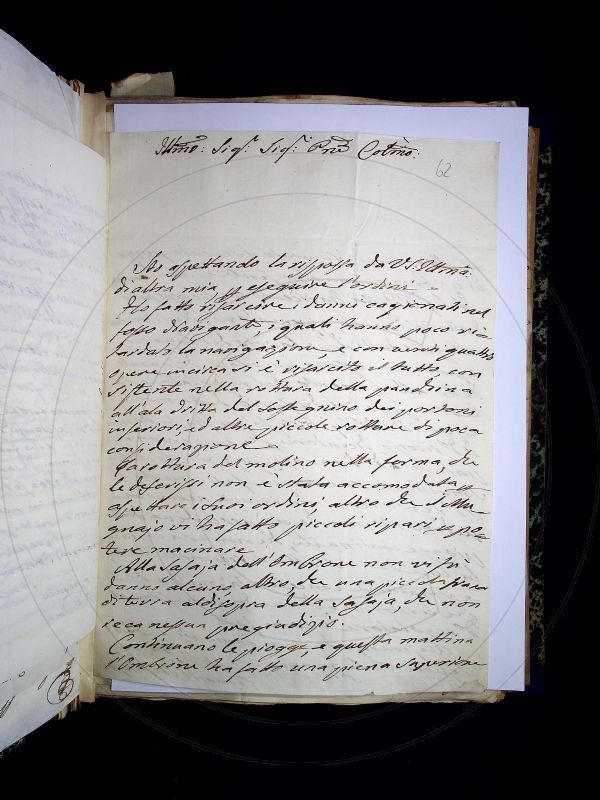 Illmo: Sigr. Sigr. Pne Colmo:
62
Sto aspettando la risposta da V.S. Illma
di altra mia p eseguire l'ordini
Ho fatto risarcire i danni cagionati nel
fosso di navigante, i quali hanno poco ri=
tardato la navigazione, e con venti quattro
opere incirca si è risarcito il tutto, con
sistente nella rottura della pandrina
all'ala dritta del sostegnino dei portoni
inferiori, ed altre piccole rotture di poca
considerazione
La rottura del molino nella forma, che
le descrissi non è stata accomodata p
aspettare i suoi ordini, altro che il Mu
gnajo vi ha fatto piccoli ripari p po=
tere macinare
Alla Sasaja dell'Ombrone non vi fù
danno alcuno, altro, che una piccola
di terra al disopra della Sasaja, che non
reca nessun pregiudizio.
Continuano le piogge, e questa mattina
l'Ombrone ha fatto una piena superiore